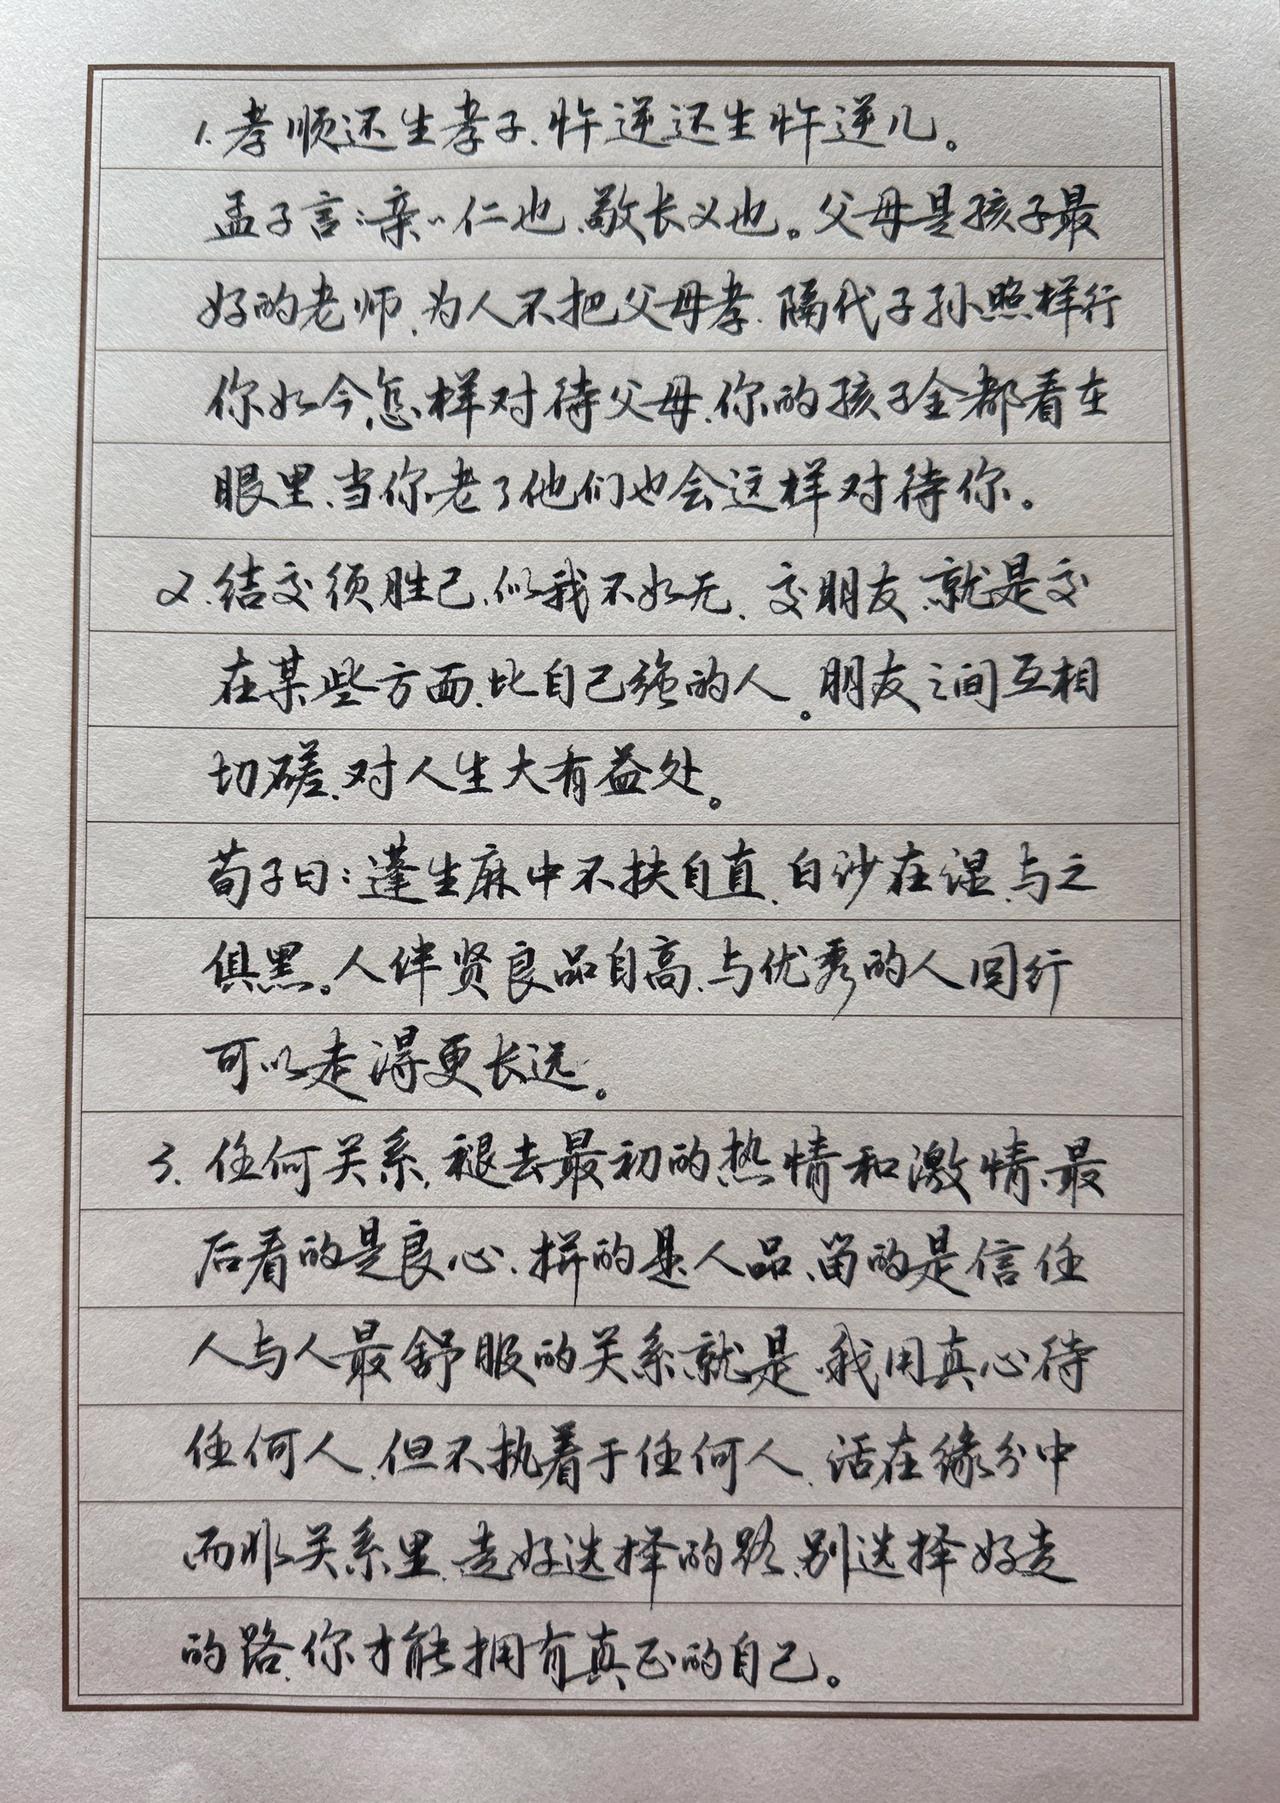 1.孝顺还生孝子、忤逆还生忤逆儿。
孟子言:亲〃仁也、敬长义也。父母是孩子最
好的老师、为人不把父母孝、隔代子孙照样行
你如今怎样对待父母、你的孩子全都看在
眼里、当你老了他们也会这样对待你。
2.结交须胜己、似我不如无、交朋友、就是交
在某些方面、比自己强的人。朋友之间互相
切磋、对人生大有益处。
荀子曰:蓬生麻中不扶自直、白沙在涅、与之
俱黑。人伴贤良品自高、与优秀的人同行
可以走得更长远。
3.任何关系、褪去最初的热情和激情、最
后看的是良心、拼的是人品、留的是信任
人与人最舒服的关系就是、我用真心待
任何人、但不执着于任何人、活在缘分中
而非关系里、走好选择的路、别选择好走
的路、你才能拥有真正的自己。